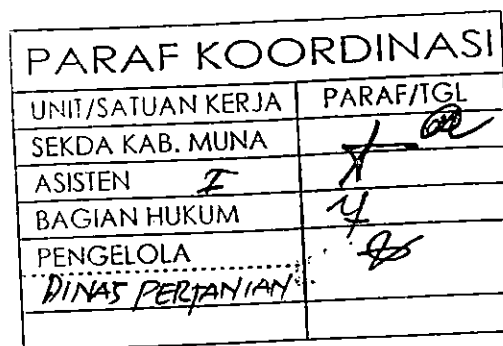 PARAF KOORDINASI
UNIT/SATUAN KERJA PARAF/TGL
SEKDA KAB. MUNA
ASISTEN I
BAGIAN HUKUM
PENGELOLA
DINAS PERTANIAN